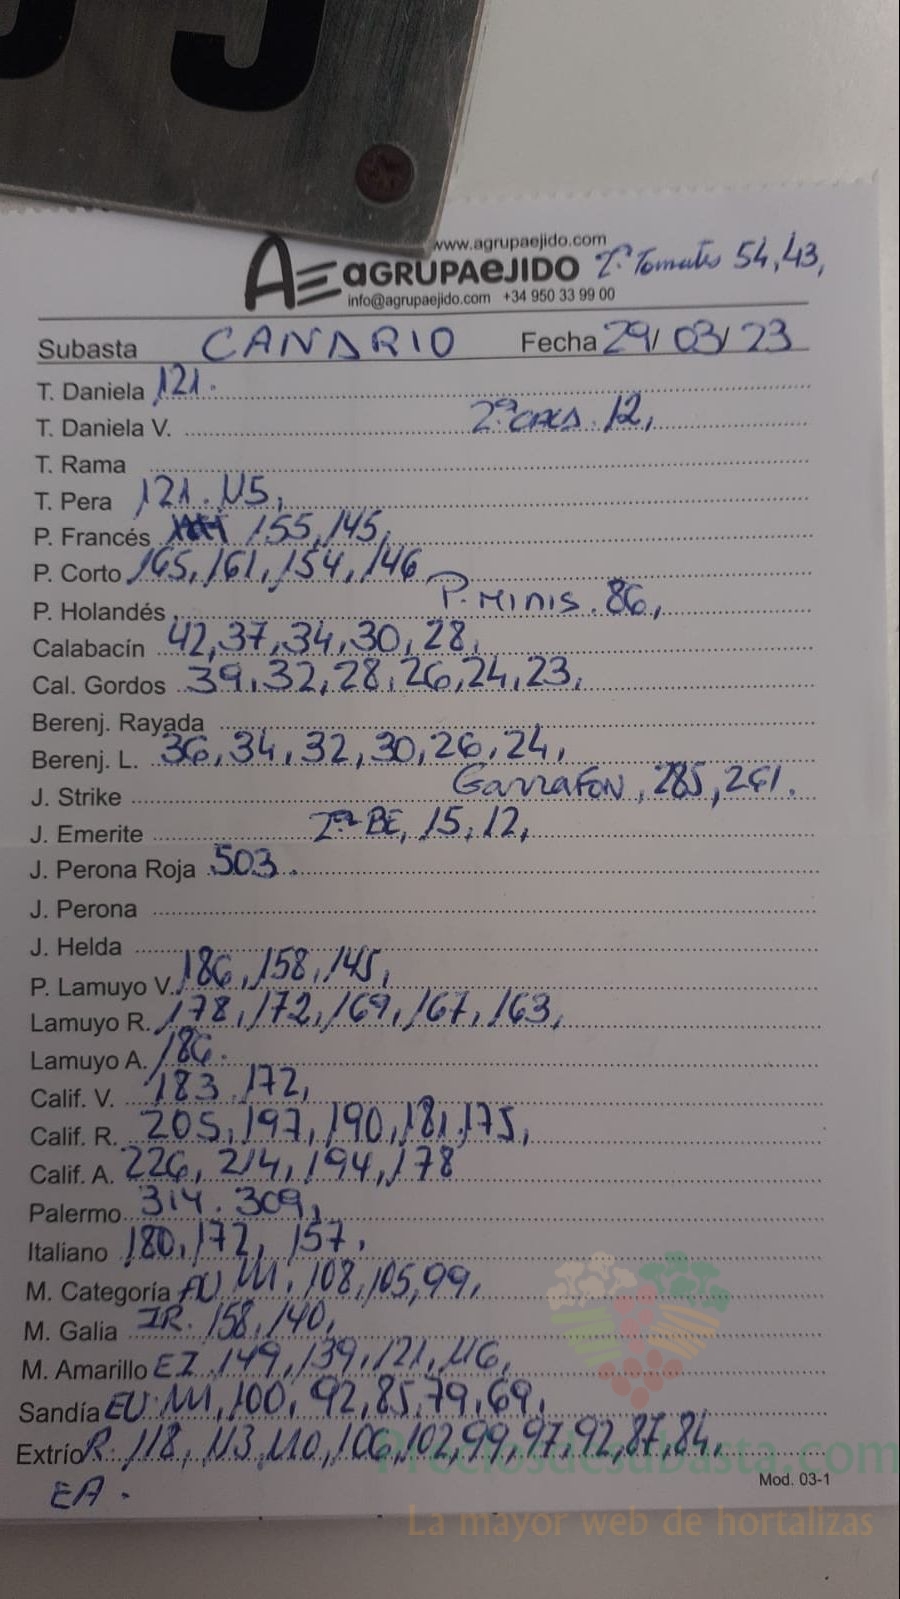 www.agrupaejido.com
AE aGRUPAeJIDO 2ª Tomates 54,43,
info@agrupaejido.com +34 950 33 99 00
Subasta CANARIO Fecha 29/03/23
T. Daniela 121.
T. Daniela V. 2ª 12,
T. Rama
T. Pera 121. 115,
P. Francés 155,145,
P. Corto 165,161,154,146
P. Holandés P. MINIS. 86,
Calabacín 42,37,34,30,28,
Cal. Gordos 39,32,28,26,24,23,
Berenj. Rayada
Berenj. L. 36,34,32,30,26,24,
J. Strike GARRAFON, 285,261.
J. Emerite 2ª BE, 15,12,
J. Perona Roja 503.
J. Perona
J. Helda
P. Lamuyo V. 186,158,145,
Lamuyo R. 178,172,169,167,163,
Lamuyo A. 186.
Calif. V. 183.172,
Calif. R. 205,197,190,181,175,
Calif. A. 226,214,194,178
Palermo 314.309,
Italiano 180,172,157.
M. Categoría 111,108,105,99,
M. Galia IR. 158,140,
M. Amarillo EZ 149,139,121,116,
Sandía EU 111,100,92,85,79,69,
Extrío R. 118,113,110,106,102,99,97,92,87,84,
EA.
Mod. 03-1
Preciosdesubasta.com
La mayor web de hortalizas